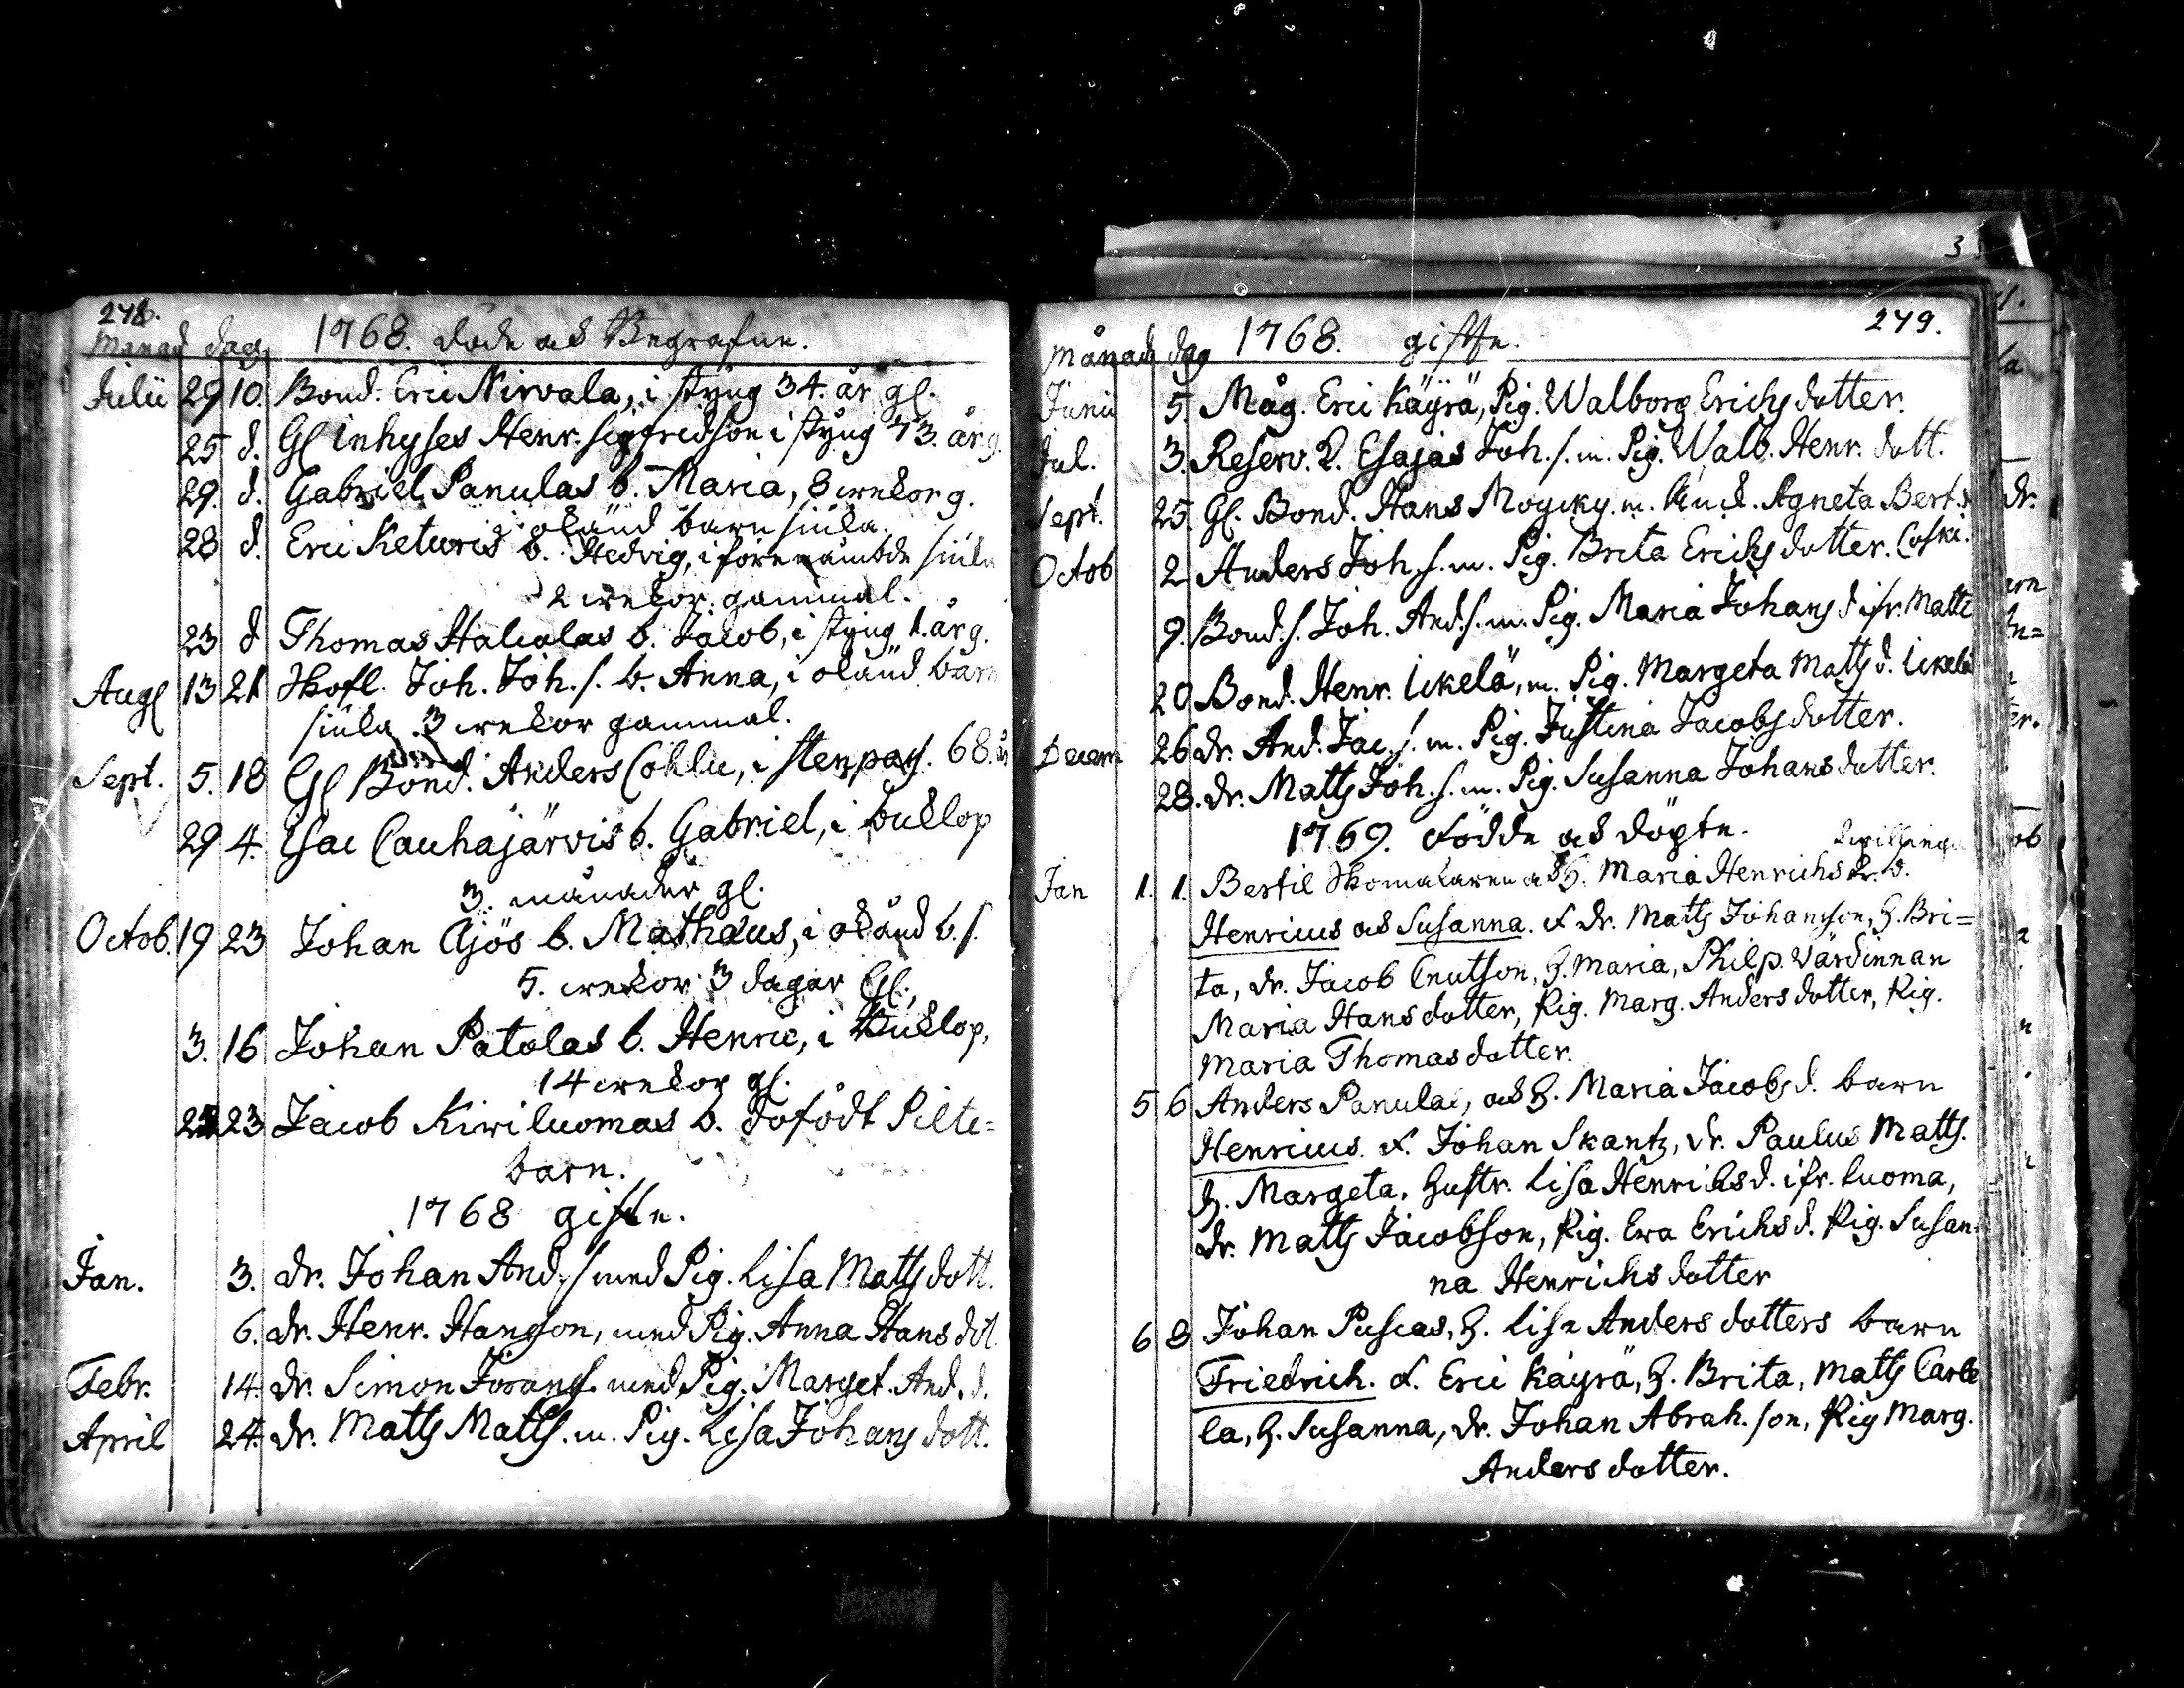 278.
Månad dag 1768. döde och Begrafne.
Julii 29 10. Bond. Eric Nirvala, i styng 34. år gl.
25 d. Gl Inhyses Henr. Sigfridson i styng 73. år g.
29. d. Gabriel Panulas b. Maria, 8 wekor g.
i okänd barn siuka.
28 d. Eric Keturis b. Hedvig, i förenämbde siuka
2 wekor gammal.
23 d Thomas Halkolas b. Jacob, i styng 1. år g.
Aug 13 21 Skofl. Joh. Joh. s. b. Anna, i okänd barn
siuka 3 wekor gammal.
Sept. 5. 18 Gl Bond. Anders Cohlu, i stenpass. 68. år
29 4. Isac Cauhajärvis b. Gabriel, i buklop
3. månader gl.
Octob. 19 23 Johan Ajös b. Mathæus, i okänd b. s.
5. wekor 3 dagar Gl.
3. 16 Johan Patolas b. Henric, i Buklop,
14 wekor gl.
23 Jacob Kiviluomas b. dofödt Pilte=
barn.
1768 gifte.
Jan. 3. dr. Johan And. s med Pig. Lisa Matts dott.
6. dr. Henr. Hanson, med Pig. Anna Hans dot.
Febr. 14. dr. Simon Jörans s. med Pig. Marget. And. d.
April 24. dr. Matts Matts s. m. Pig. Lisa Johans dott.
279.
Månad dag 1768. gifte.
Junii 5. Måg. Eric Käyrä, Pig. Walborg Erichs dotter.
Jul. 3. Reserv. K. Esajas Joh. s. m. Pig. Walb. Henr. dott.
Sept. 25. Gl. Bond. Hans Moysky. m. Enck. Agneta Bert.
Octob 2 Anders Joh. s. m. Pig. Brita Erichs dotter. Coski.
9. Bond. s. Joh. And. s. m. Pig. Maria Johans d ifr. Matti
20 Bond. Henr. Ikelä, m. Pig. Margeta Matts d. Ikelä
Decem 26 dr. And. Jac. s. m. Pig. Justina Jacobs dotter.
28. dr. Matts Joh. s. m. Pig. Susanna Johans dotter.
1769. Födde och döpte.
Jan 1. 1. Bertil Skomakaren och H. Maria Henrichs d. b.
Henricus och Susanna. f dr. Matts Johansson, H. Bri=
ta, dr. Jacob Cnutson, H. Maria, Philp. Värdinnan
Maria Hans dotter, Pig. Marg. Anders dotter, Pig.
Maria Thomas dotter.
5 6 Anders Panulas, och H. Maria Jacobs d. barn
Henricus. f. Johan Skantz, dr. Paulus Matts.
H. Margeta. Hustr. Lisa Henrichs d. ifr. Luoma,
dr. Matts Jacobson, Pig. Eva Erichs d. Pig. Susan=
na Henrichs dotter
6 8 Johan Puscas, H. Lisa Anders dotters barn
Friedrich. f. Eric Käyrä, H. Brita, Matts Carle
la, H. Susanna, dr. Johan Abrah. son, Pig Marg.
Anders dotter.